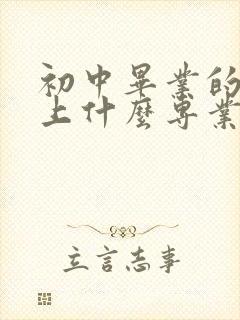 初中畢業的
上什麼專業
立言志事